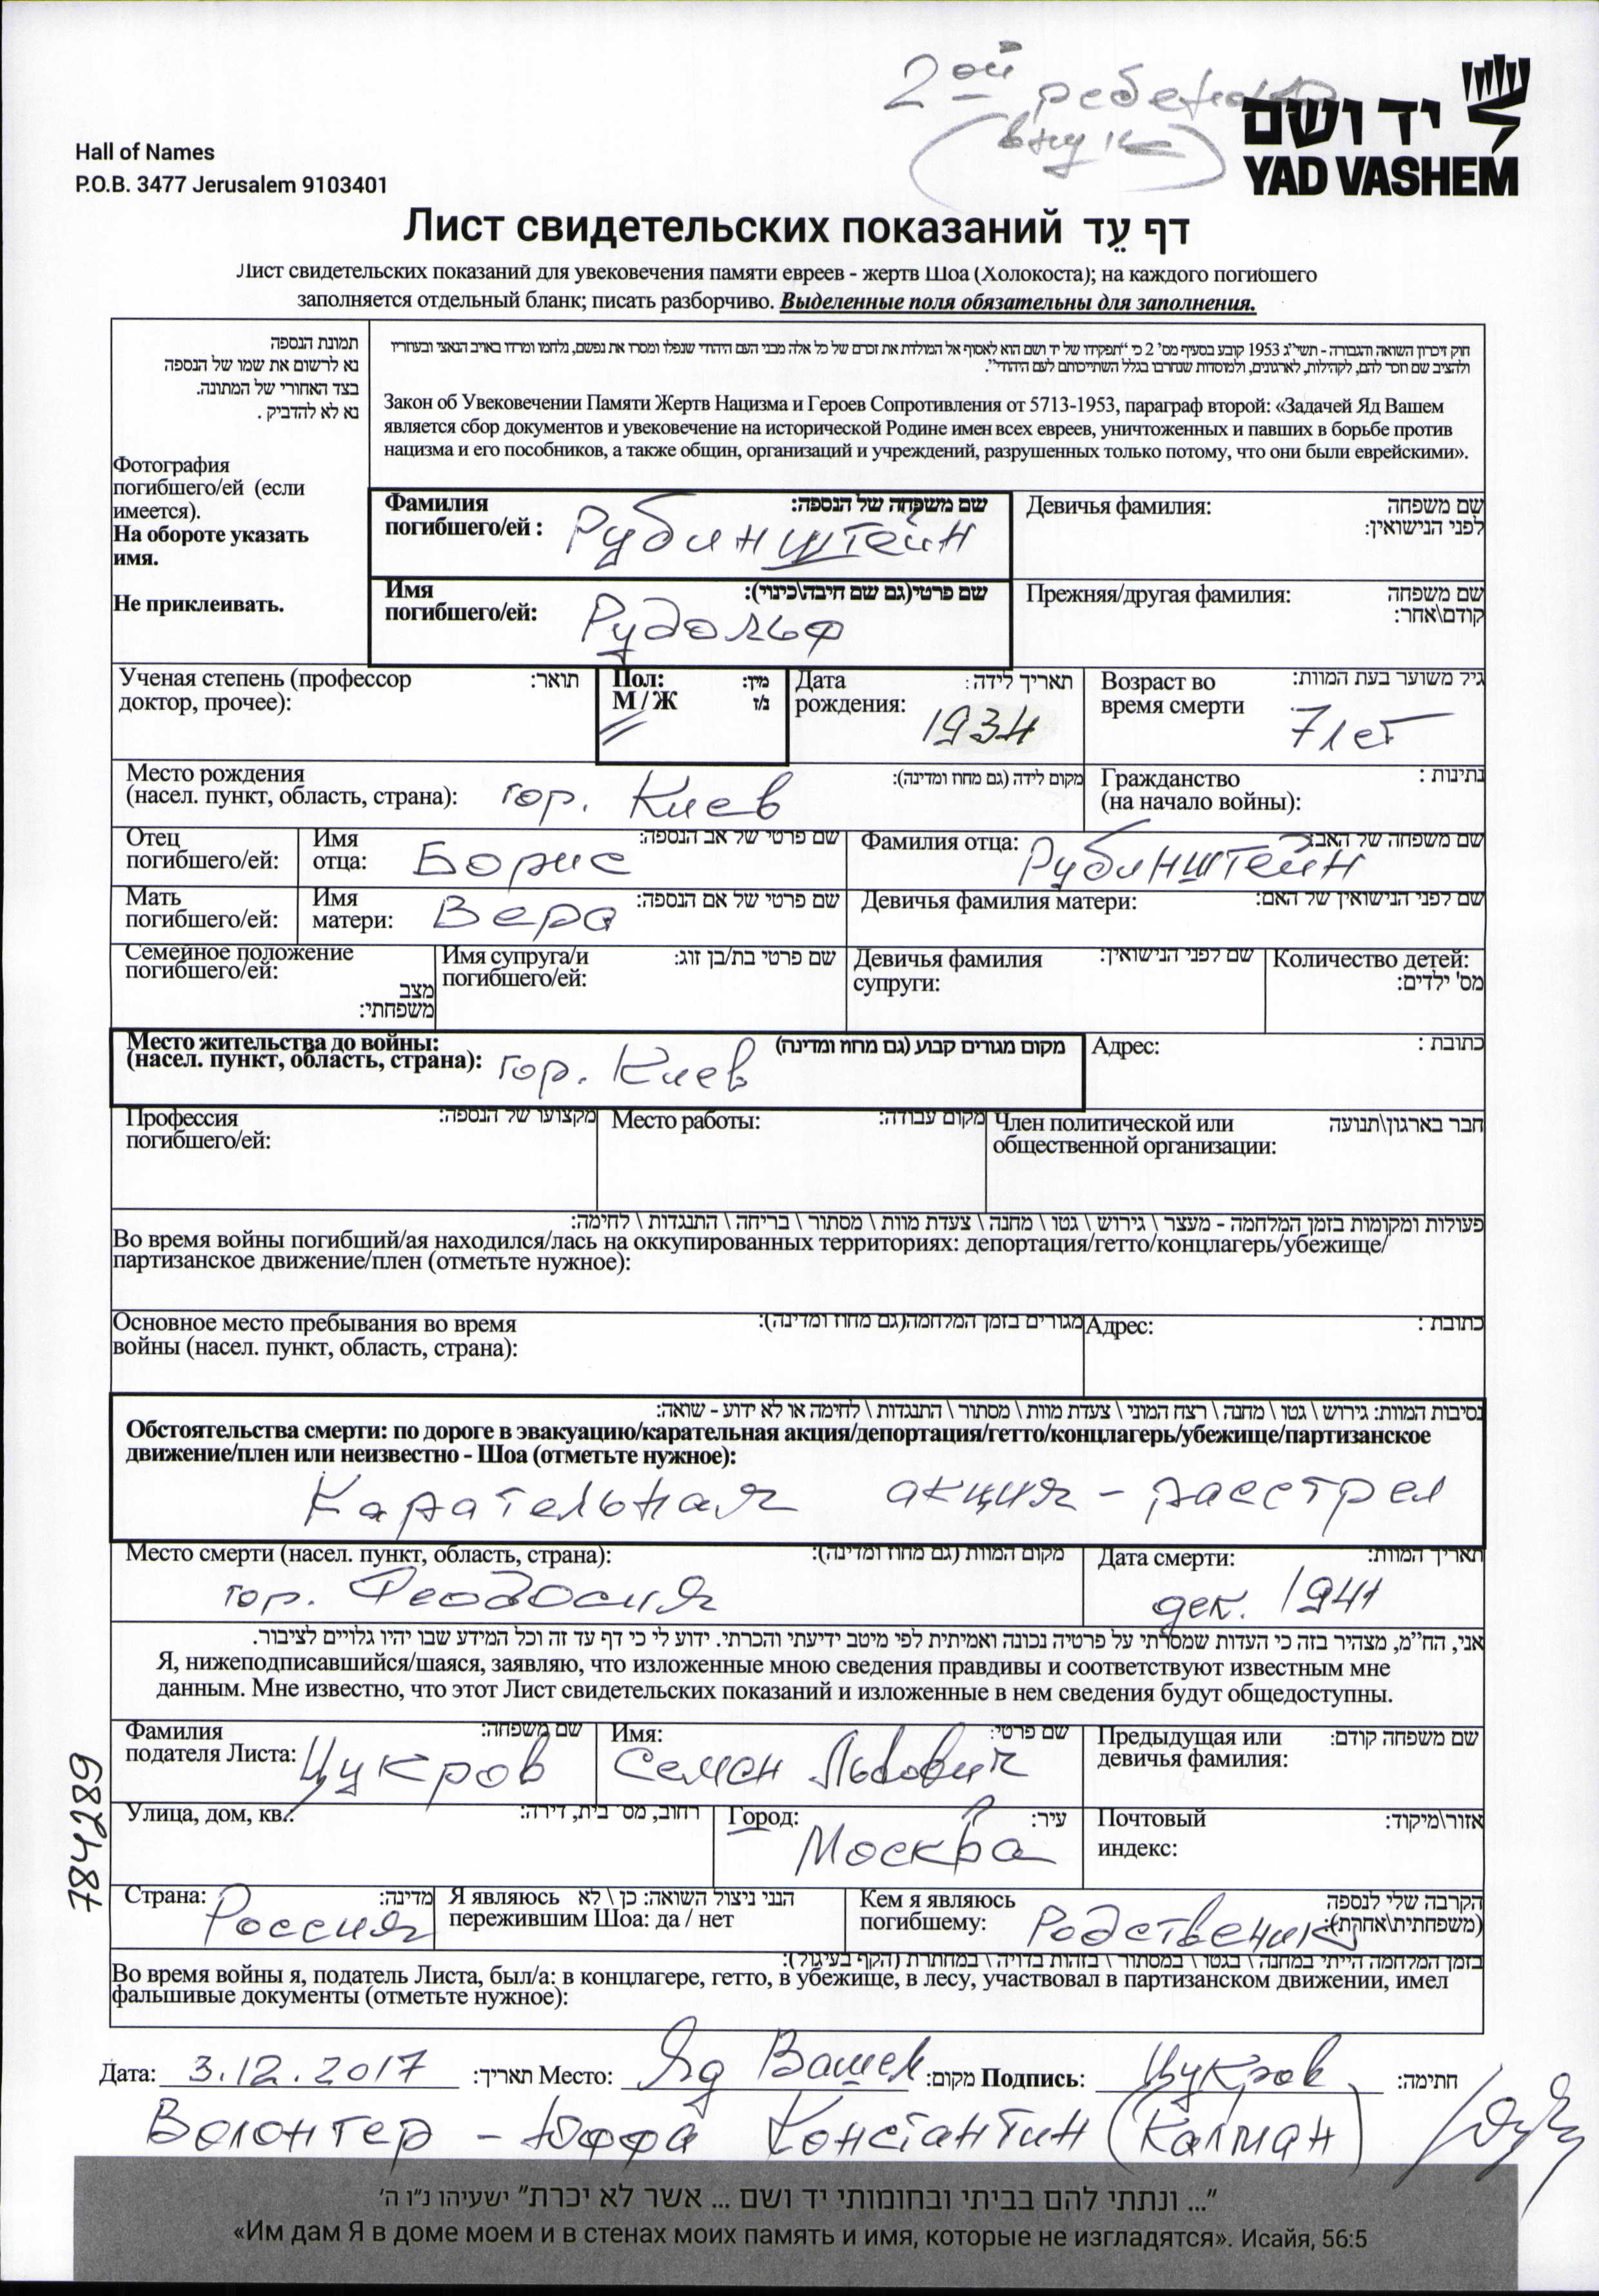 2ой ребенок
(внук)
יד ושם
YAD VASHEM
Hall of Names
P.O.B. 3477 Jerusalem 9103401
Лист свидетельских показаний דף עֵד
Лист свидетельских показаний для увековечения памяти евреев - жертв Шоа (Холокоста); на каждого погибшего
заполняется отдельный бланк; писать разборчиво. Выделенные поля обязательны для заполнения.
תמונת הנספה
נא לרשום את שמו של הנספה
בצד האחורי של המתונה.
נא לא להדביק .
Фотография
погибшего/ей (если
имеется).
На обороте указать
имя.
Не приклеивать.
חוק זיכרון השואה והגבורה - תשי"ג 1953 קובע בסעיף מס' 2 כי "תפקידו של יד ושם הוא לאסוף אל המולדת את זכרם של כל אלה מבני העם היהודי שנפלו ומסרו את נפשם, נלחמו ומרדו באויב הנאצי ובעוזריו
ולהציב שם וזכר להם, לקהילות, לארגונים, ולמוסדות שנחרבו בגלל השתייכותם לעם היהודי".
Закон об Увековечении Памяти Жертв Нацизма и Героев Сопротивления от 5713-1953, параграф второй: «Задачей Яд Вашем
является сбор документов и увековечение на исторической Родине имен всех евреев, уничтоженных и павших в борьбе против
нацизма и его пособников, а также общин, организаций и учреждений, разрушенных только потому, что они были еврейскими».
Фамилия שם משפחה של הנספה:
погибшего/ей : Рубинштейн
Девичья фамилия: שם משפחה
לפני הנישואין:
Имя שם פרטי(גם שם חיבה\כינוי):
погибшего/ей: Рудольф
Прежняя/другая фамилия: שם משפחה
קודם\אחר:
Ученая степень (профессор תואר:
доктор, прочее):
Пол: מין:
М / Ж ז/נ
Дата תאריך לידה :
рождения: 1934
Возраст во גיל משוער בעת המוות:
время смерти 7 лет
Место рождения מקום לידה (גם מחוז ומדינה):
(насел. пункт, область, страна): гор. Киев
Гражданство נתינות :
(на начало войны):
Отец
погибшего/ей:
Имя שם פרטי של אב הנספה:
отца: Борис
Фамилия отца: שם משפחה של האב:
Рубинштейн
Мать
погибшего/ей:
Имя שם פרטי של אם הנספה:
матери: Вера
Девичья фамилия матери: שם לפני הנישואין של האם:
Семейное положение
погибшего/ей:
מצב
משפחתי:
Имя супруга/и שם פרטי בת/בן זוג:
погибшего/ей:
Девичья фамилия שם לפני הנישואין:
супруги:
Количество детей:
מס' ילדים:
Место жительства до войны: מקום מגורים קבוע (גם מחוז ומדינה)
(насел. пункт, область, страна): гор. Киев
Адрес: כתובת :
Профессия מקצועו של הנספה:
погибшего/ей:
Место работы: מקום עבודה:
Член политической или חבר בארגון\תנועה
общественной организации:
פעולות ומקומות בזמן המלחמה - מעצר \ גירוש \ גטו \ מחנה \ צעדת מוות \ מסתור \ בריחה \ התנגדות \ לחימה:
Во время войны погибший/ая находился/лась на оккупированных территориях: депортация/гетто/концлагерь/убежище/
партизанское движение/плен (отметьте нужное):
Основное место пребывания во время מגורים בזמן המלחמה(גם מחוז ומדינה):
войны (насел. пункт, область, страна):
Адрес: כתובת :
נסיבות המוות: גירוש \ גטו \ מחנה \ רצח המוני \ צעדת מוות \ מסתור \ התנגדות \ לחימה או לא ידוע - שואה:
Обстоятельства смерти: по дороге в эвакуацию/карательная акция/депортация/гетто/концлагерь/убежище/партизанское
движение/плен или неизвестно - Шоа (отметьте нужное):
Карательная акция - расстрел
Место смерти (насел. пункт, область, страна): מקום המוות (גם מחוז ומדינה):
гор. Феодосия
Дата смерти: תאריך המוות:
дек. 1941
אני, הח"מ, מצהיר בזה כי העדות שמסרתי על פרטיה נכונה ואמיתית לפי מיטב ידיעתי והכרתי. ידוע לי כי דף עד זה וכל המידע שבו יהיו גלויים לציבור.
Я, нижеподписавшийся/шаяся, заявляю, что изложенные мною сведения правдивы и соответствуют известным мне
данным. Мне известно, что этот Лист свидетельских показаний и изложенные в нем сведения будут общедоступны.
Фамилия שם משפחה:
подателя Листа: Цукров
Имя: שם פרטי:
Семен Львович
Предыдущая или שם משפחה קודם:
девичья фамилия:
Улица, дом, кв.: רחוב, מס' בית, דירה:
Город: עיר:
Москва
Почтовый אזור\מיקוד:
индекс:
Страна: מדינה:
Россия
Я являюсь הנני ניצול השואה: כן \ לא
пережившим Шоа: да / нет
Кем я являюсь הקרבה שלי לנספה
погибшему: Родственник (משפחתית\אחרת):
בזמן המלחמה הייתי במחנה \ בגטו \ במסתור \ בזהות בדויה \ במחתרת (הקף בעיגול):
Во время войны я, податель Листа, был/а: в концлагере, гетто, в убежище, в лесу, участвовал в партизанском движении, имел
фальшивые документы (отметьте нужное):
784289
Дата: 3.12.2017 תאריך: Место: Яд Вашем מקום: Подпись: Цукров חתימה:
Волонтер - Юффа Константин (Калман)
"... ונתתי להם בביתי ובחומותי יד ושם ... אשר לא יכרת" ישעיהו נ"ו ה'
«Им дам Я в доме моем и в стенах моих память и имя, которые не изгладятся». Исайя, 56:5